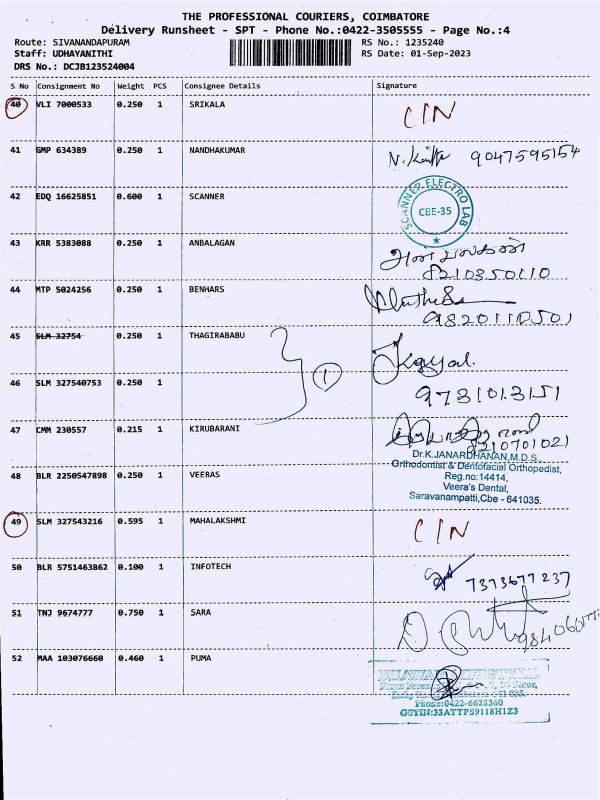 THE PROFESSIONAL COURIERS, COIMBATORE
Delivery Runsheet - SPT - Phone No.:0422-3505555 - Page No.:4
Route: SIVANANDAPURAM RS No.: 1235240
Staff: UDHAYANITHI RS Date: 01-Sep-2023
DRS No.: DCJB123524004
S No Consignment No Weight PCS Consignee Details Signature
40 VLI 7000533 0.250 1 SRIKALA CIN
41 GMP 634389 0.250 1 NANDHAKUMAR 9047595154
42 EDQ 16625851 0.600 1 SCANNER SCANNER ELECTRO LAB CBE-35
43 KRR 5383088 0.250 1 ANBALAGAN
8210350110
44 MTP 5024256 0.250 1 BENHARS
9820110501
45 SLM 32754 0.250 1 THAGIRABABU
46 SLM 327540753 0.250 1 1 9731013151
47 CMM 230557 0.215 1 KIRUBARANI
8210701021
Dr.K.JANARDHANAN,M.D.S.,
Orthodontist & Dentofacial Orthopedist,
48 BLR 2250547898 0.250 1 VEERAS Reg.no:14414,
Veera's Dental,
Saravanampatti,Cbe - 641035.
49 SLM 327543216 0.595 1 MAHALAKSHMI CIN
50 BLR 5751463862 0.100 1 INFOTECH 7373677237
51 TNJ 9674777 0.750 1 SARA
52 MAA 103076660 0.460 1 PUMA
Phone:0422-6628360
GSTIN:33ATTPS9118H1Z3